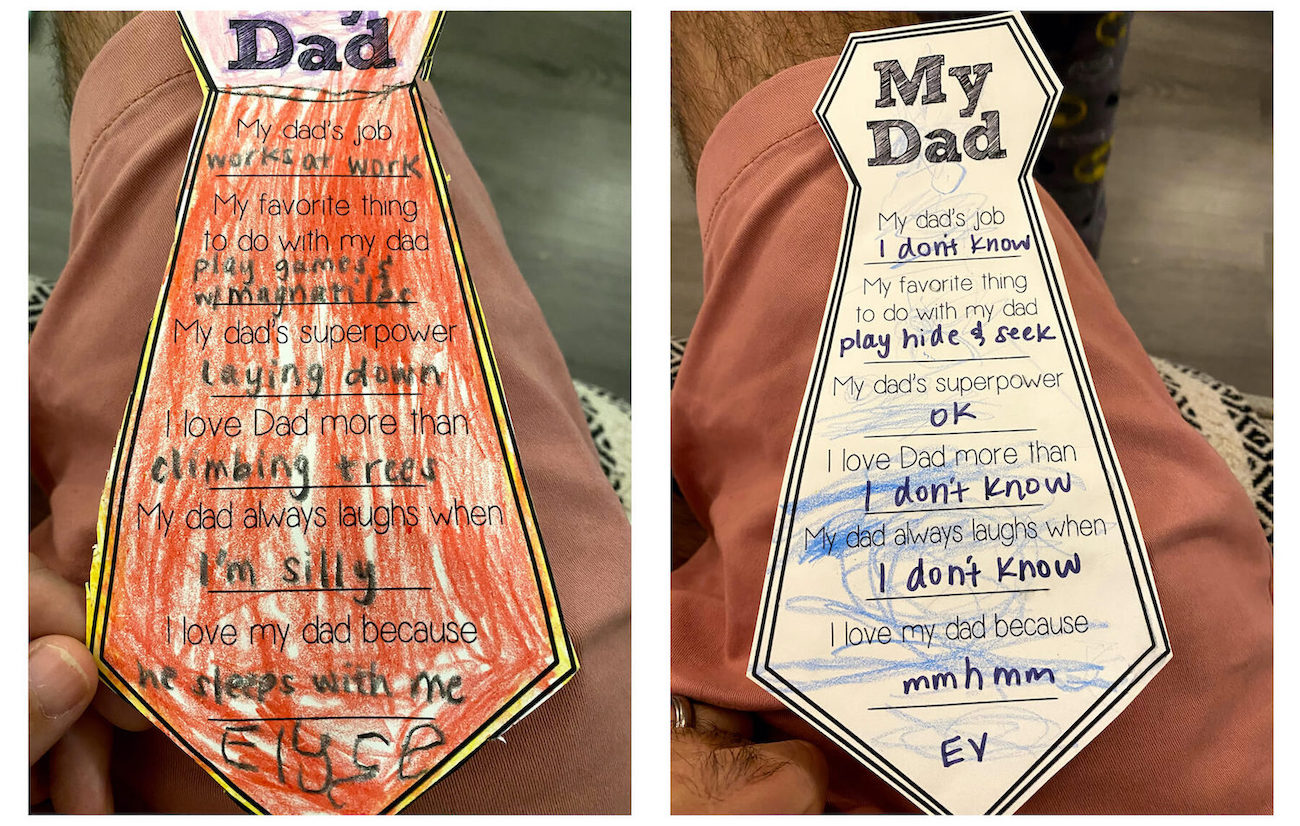 My
Dad
My dad's job
works at work
My favorite thing
to do with my dad
play games &
w/magnatiles
My dad's superpower
laying down
I love Dad more than
climbing trees
My dad always laughs when
I'm silly
I love my dad because
he sleeps with me
Elyse
My
Dad
My dad's job
I don't know
My favorite thing
to do with my dad
play hide & seek
My dad's superpower
OK
I love Dad more than
I don't know
My dad always laughs when
I don't know
I love my dad because
mmhmm
EV